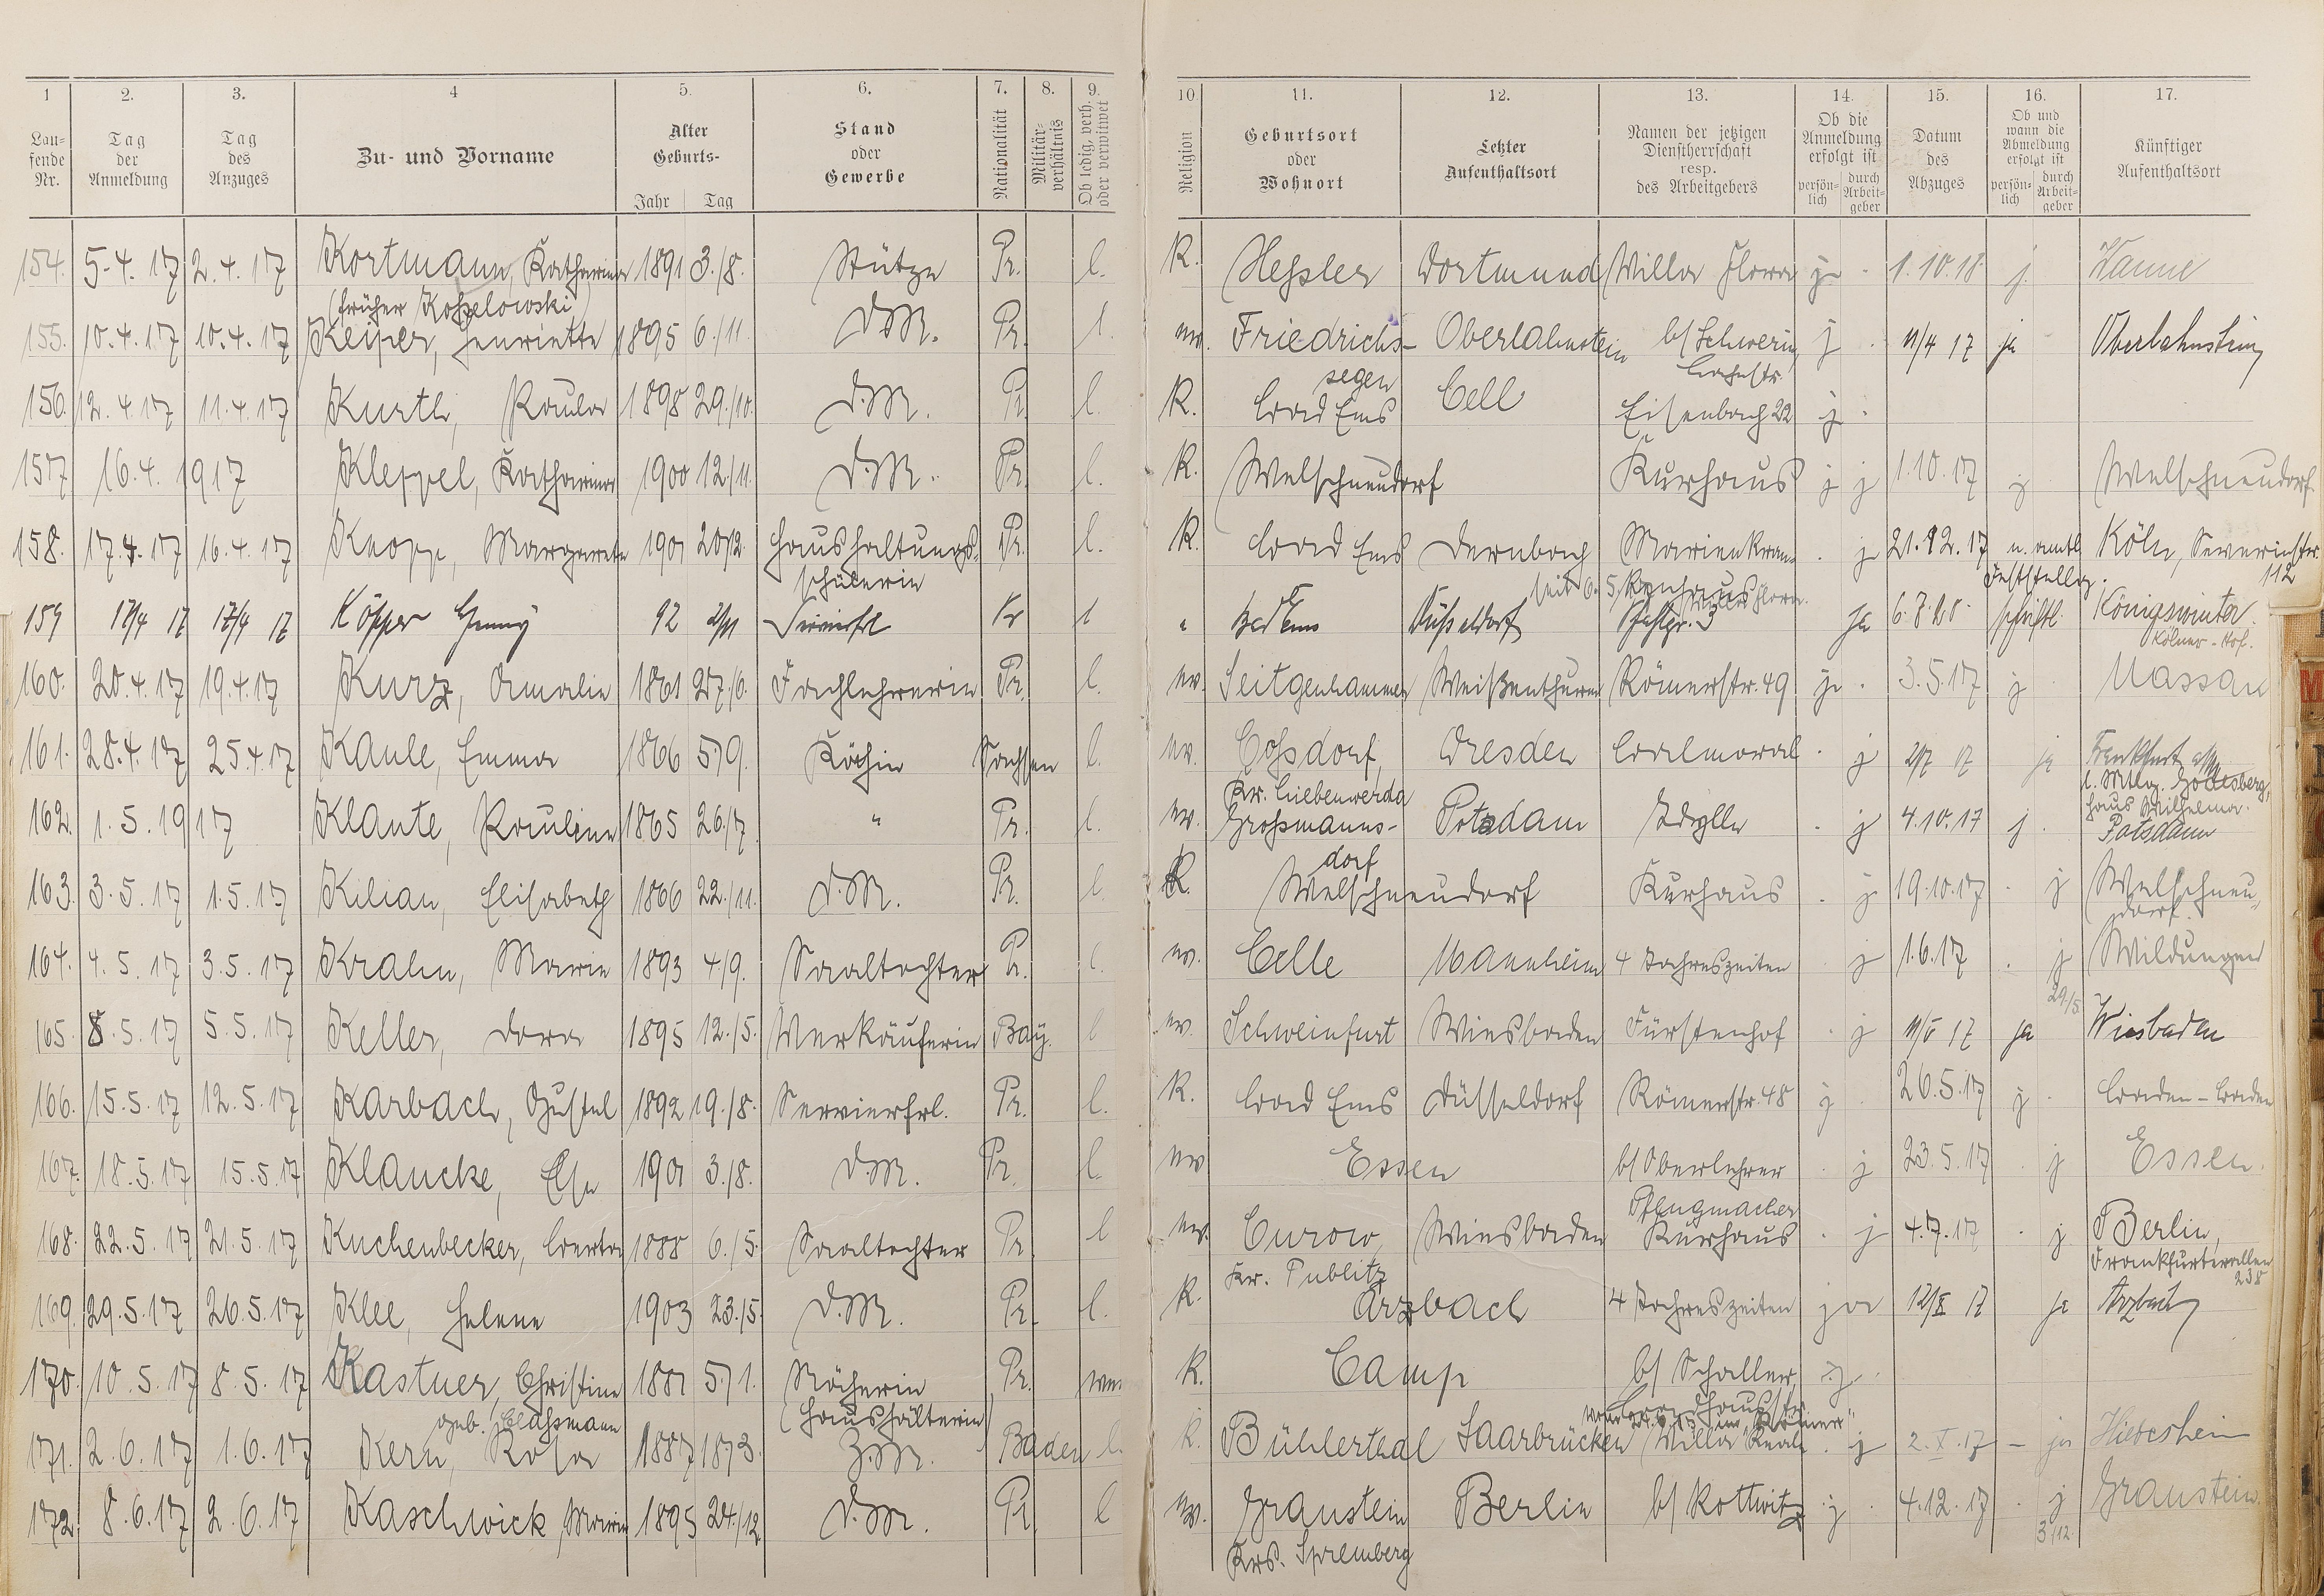 1 2. 3. 4 5. 6. 7. 8. 9. 10. 11. 12. 13. 14. 15. 16. 17.
Laufende Nr. Tag der Anmeldung Tag des Anzuges Zu- und Vorname Alter Geburts- Jahr Tag Stand oder Gewerbe Nationalität Militärverhältnis Ob ledig, verh. oder verwitwet Religion Geburtsort oder Wohnort Letzter Aufenthaltsort Namen der jetzigen Dienstherrschaft resp. des Arbeitgebers Ob die Anmeldung erfolgt ist persönlich durch Arbeitgeber Datum des Abzuges Ob und wann die Abmeldung erfolgt ist persönlich durch Arbeitgeber Künftiger Aufenthaltsort
154. 5.4.17 2.4.17 Kortmann, Katharina 1891 3./8. Stütze Pr. l. K. Heßler Dortmund Villa Flora j. 1.10.18. j. Wanne
(früher Koßelowski)
155. 10.4.17 10.4.17 Keiper, Henriette 1895 6./11. D.M. Pr. l. ev. Friedrichs- Oberlahnstein b/ Schwerin j 11/4 17 ja Oberlahnstein
segen
156. 12.4.17 11.4.17 Kurth, Paula 1898 29./10. D.M. Pr. l. K. Bad Ems Cell Eisenbach 22 j.
157 16.4.1917 Kleppel, Katharina 1900 12./11. D.M. Pr. l. K. Welschneudorf Kurhaus j j 1.10.17 j Welschneudorf
158. 17.4.17 16.4.17 Knopp, Margarete 1901 20/2. Haushaltungs- Pr. l. K. Bad Ems Dernbach Marienkran- . j 21.12.17 n. amtl. Köln, Severinstr.
schülerin kenhaus Feststellg. 112
seit 6.5. Villa Flora
159 17/4 17 17/4 17 Köpper Henny 92 2/11 Servierfrl Pr l " Bad Ems Düsseldorf Pfahlgr. 3 ja 6.7.20. schriftl. Königswinter
Kölner-Hof.
160. 20.4.17 19.4.17 Kurz, Amalie 1861 27./6. Fachlehrerin Pr. l. ev. Seitgenhammer Weißenthurm Römerstr. 49 j. 3.5.17 j Nassau
161. 28.4.17 25.4.17 Kaule, Emma 1866 5/9. Köchin Sachsen l. ev. Coßdorf, Dresden Balmoral . j 2/7 17 ja Frankfurt a/M
Kr. Liebenwerda l. Mtlg. Godesberg,
Haus Wilhelma.
162. 1.5.1917 Klante, Pauline 1865 26./7. " Pr. l. ev. Großmanns- Potsdam Idylle . j 4.10.17 j Potsdam
dorf
163. 3.5.17 1.5.17 Kilian, Elisabeth 1866 22./11. D.M. Pr. l K. Welschneudorf Kurhaus . j 19.10.17 . j Welschneu-
dorf.
164. 4.5.17 3.5.17 Krahn, Marie 1893 4/9. Saaltochter Pr. l. ev. Celle Mannheim 4 Jahreszeiten . j 1.6.17 . j Wildungen
29./5.
165. 8.5.17 5.5.17 Keller, Dora 1895 12./5. Verkäuferin Bay. l ev. Schweinfurt Wiesbaden Fürstenhof . j 11/V 17 ja Wiesbaden
166. 15.5.17 12.5.17 Karbach, Gustel 1892 19./8. Servierfrl. Pr. l. K. Bad Ems Düsseldorf Römerstr. 48 j . 26.5.17 j . Baden-Baden
167. 18.5.17 15.5.17 Klancke, Else 1901 3./8. D.M. Pr. l. ev Essen b/ Oberlehrer . j 23.5.17 . j Essen.
Pflugmacher
168. 22.5.17 21.5.17 Kuchenbecker, Berta 1888 6./5. Saaltochter Pr. l ev. Curow, Wiesbaden Kurhaus . j 4.7.17 . j Berlin,
Kr. Publitz Frankfurterallee 238
169. 29.5.17 26.5.17 Klee, Helene 1903 23./5. D.M. Pr. l. K. Arzbach 4 Jahreszeiten ja 12/X 17 ja Arzbach
170. 10.5.17 8.5.17 Kastner, Christine 1881 5/1. Köchin Pr. K. Camp b/ Schaller, j.
geb. Claßmann (Haushälterin)
171. 2.6.17 1.6.17 Kern, Rosa 1887 18/3. Z.M. Baden l. K. Bühlerthal Saarbrücken Villa . j 2.X.17 – ja
172. 8.6.17 2.6.17 Kaschwick, Marie 1895 24./12. D.M. Pr. l ev. Graustein Berlin b/ Kottwitz j . 4.12.17 . j Graustein
Krs. Spremberg 3./12.